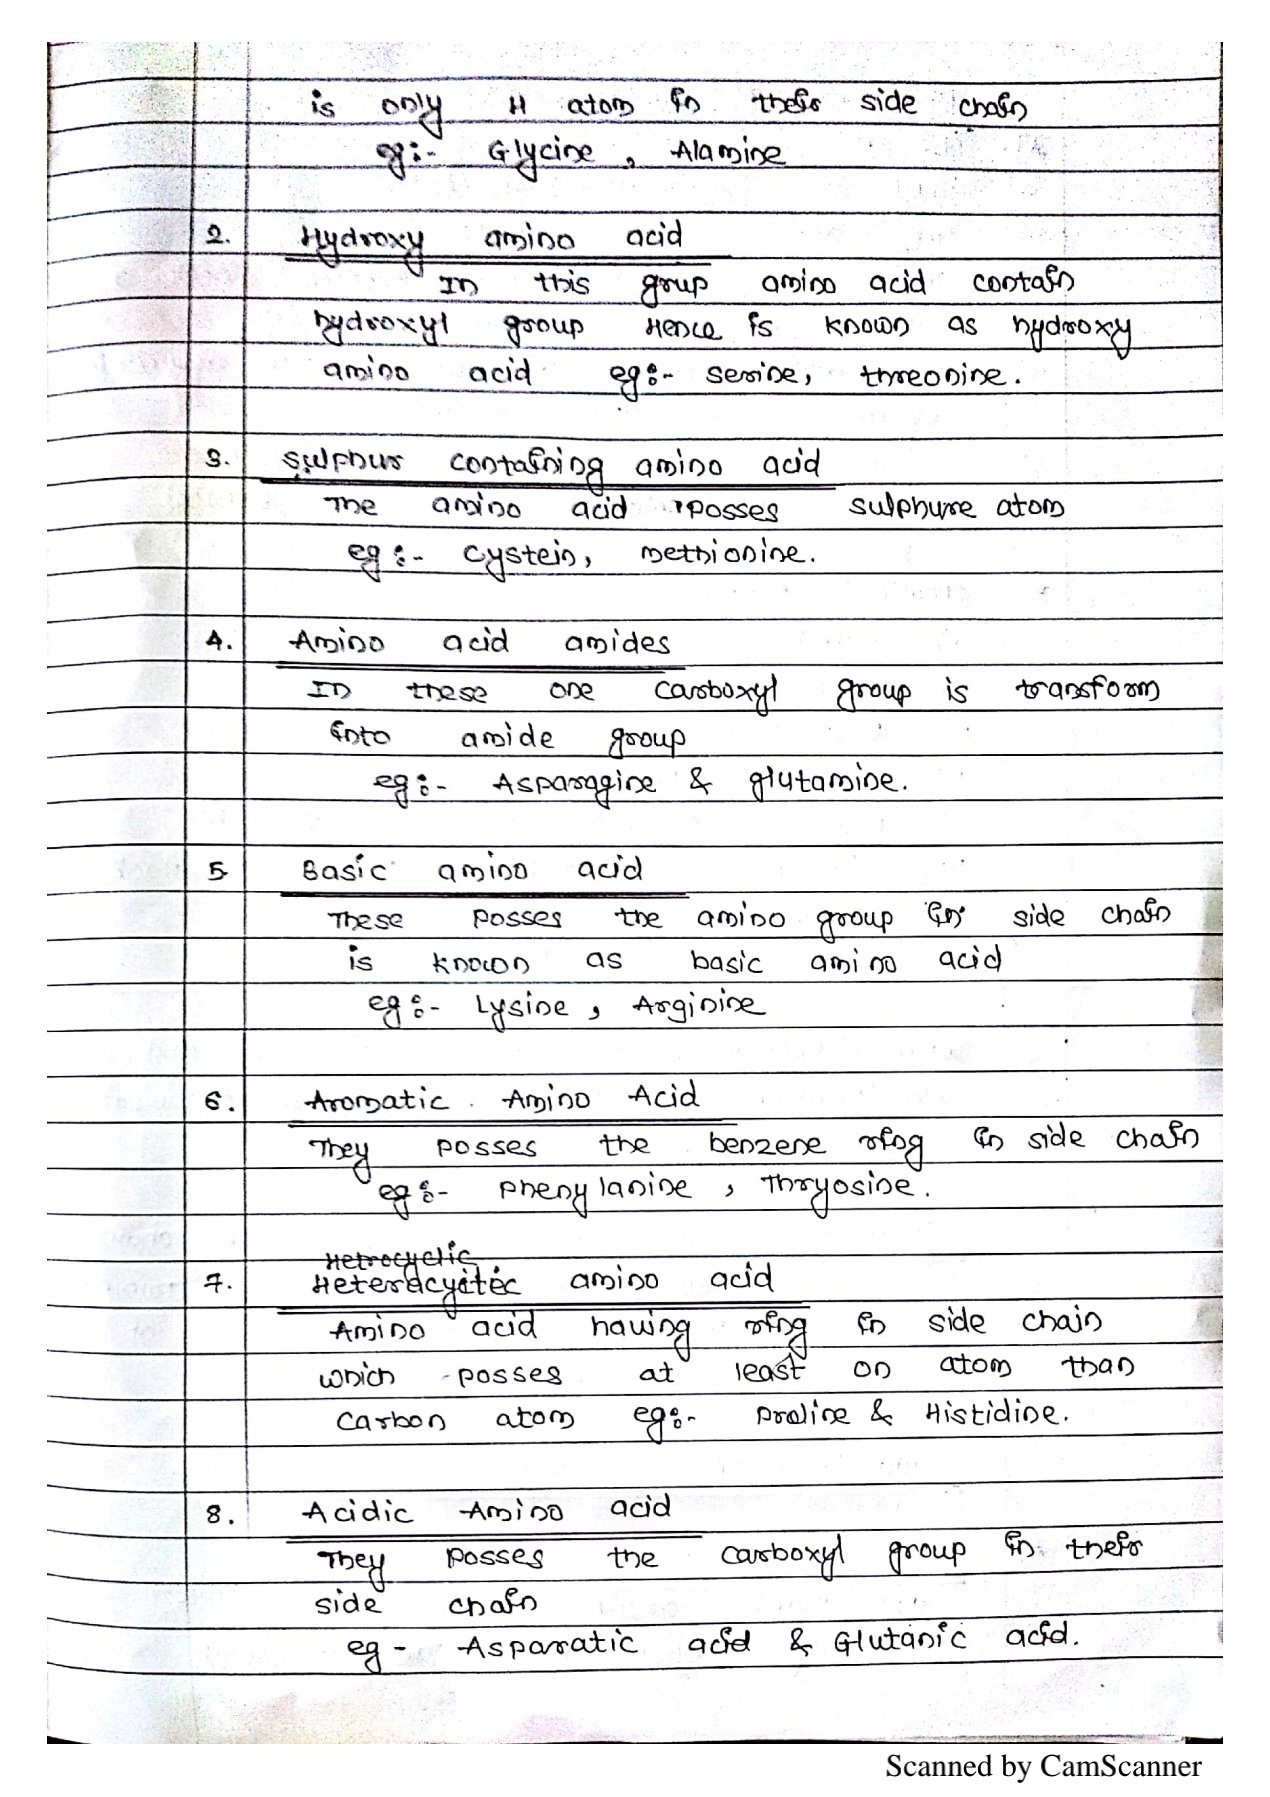 is only H atom in their side chain
eg:- Glycine, Alamine
2. Hydroxy amino acid
In this grup amino acid contain
hydroxyl group Hence is known as hydroxy
amino acid eg:- serine, threonine.
3. Sulphur containing amino acid
The amino acid posses sulphure atom
eg:- Cystein, methionine.
4. Amino acid amides
In these one carboxyl group is transform
into amide group
eg:- Asparagine & glutamine.
5 Basic amino acid
These posses the amino group in side chain
is known as basic amino acid
eg:- Lysine, Arginine
6. Aromatic Amino Acid
They posses the benzene ring in side chain
eg:- Phenylanine, Thryosine.
Hetrocyclic
7. amino acid
Amino acid having ring in side chain
which posses at least on atom than
carbon atom eg:- Proline & Histidine.
8. Acidic Amino acid
They posses the carboxyl group in their
side chain
eg - Asparatic acid & Glutanic acid.
Scanned by CamScanner